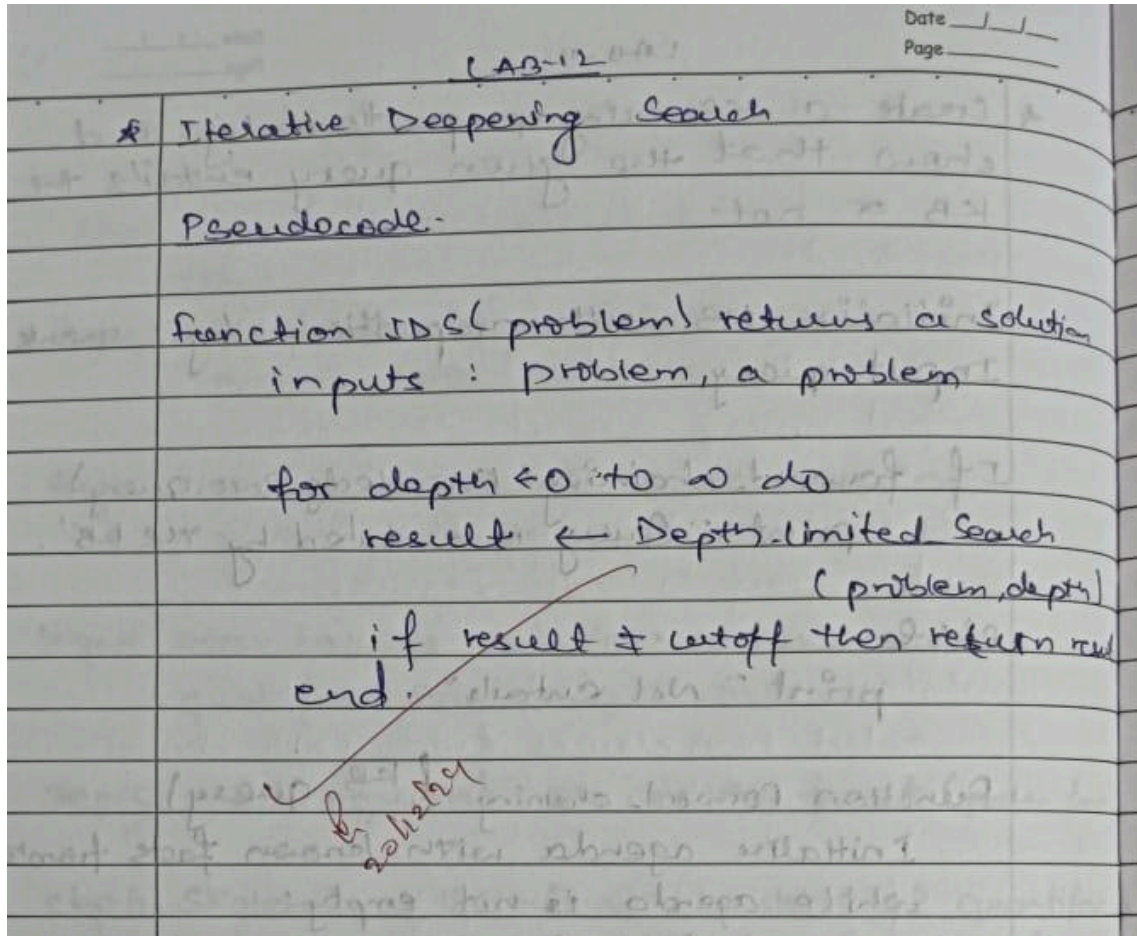 Date __/__/__
Page
LAB-12
* Iterative Deepening Search
Pseudocode.
function IDS( problem) returns a solution
inputs : problem, a problem
for depth ← 0 to ∞ do
result ← Depth-limited Search
(problem, depth)
if result ≠ cutoff then return
end.
20/12/24